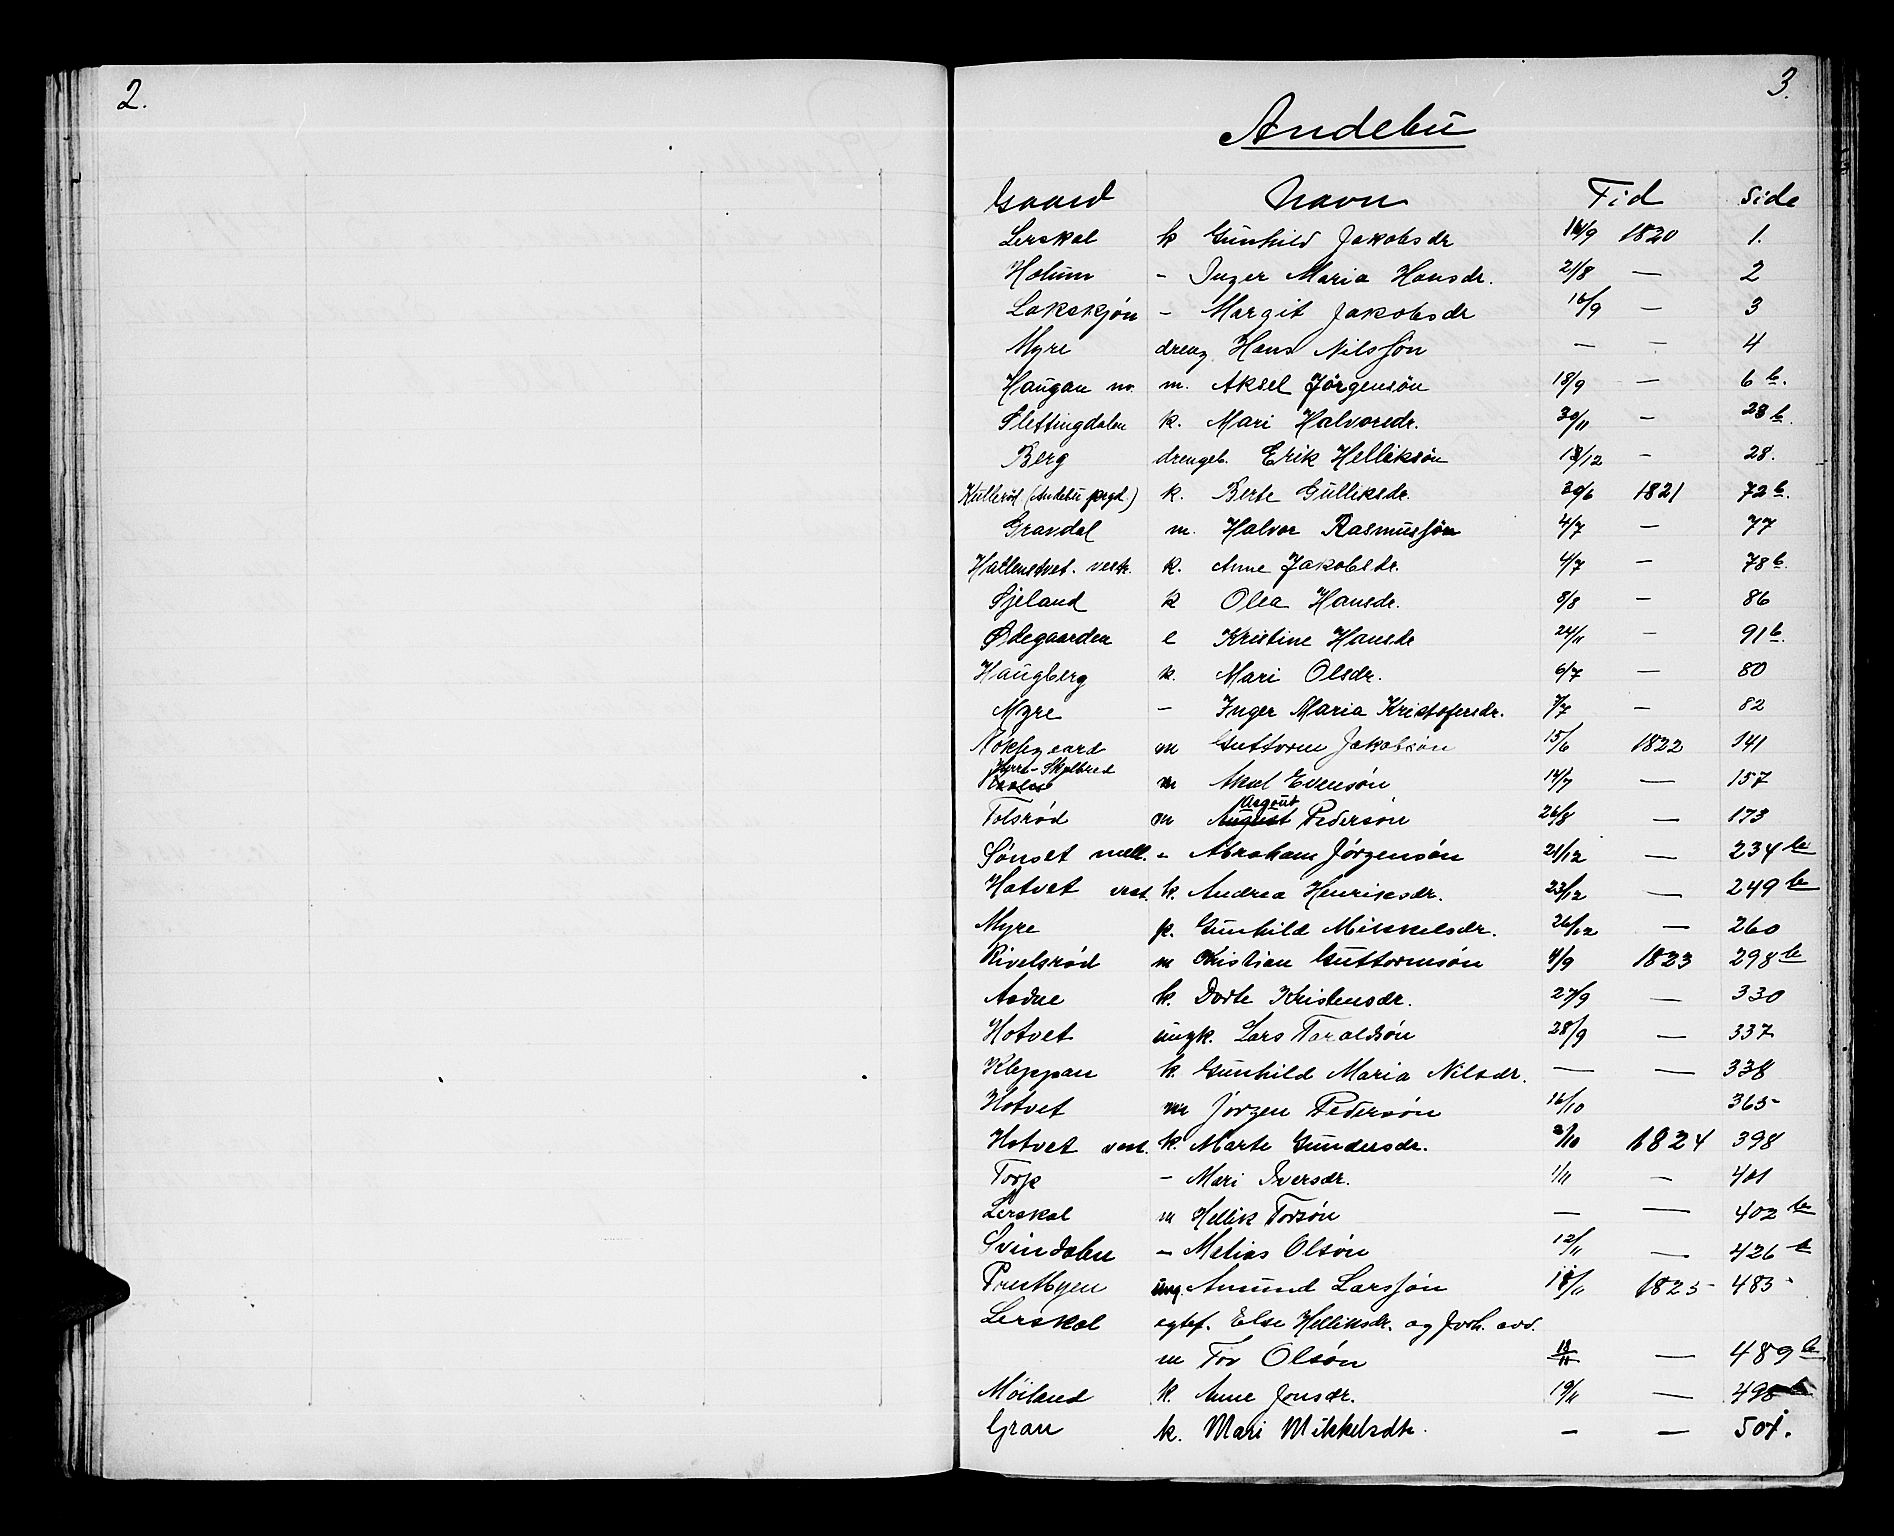 2.
3.
Andebu
Gaard Navn Tid Side
Lerskal k Gunhild Jakobsdr 16/9 1820 1.
Holum - Inger Maria Hansdr. 21/8 — 2
Lakskjøn - Margit Jakobsdr 16/9 — 3
Myre dreng Hans Nilssøn — — 4
Haugan no. m. Aksel Jørgensøn 18/9 — 6 b.
Slettingdalen k. Mari Halvorsdr. 30/11 - 23 b.
Berg drengeb. Erik Helliksøn 13/12 - 28.
Kullerød (Andebu prgd.) k. Berte Gulliksdr. 30/6 1821 72 b.
Gravdal m. Halvor Rasmussøn 4/7 — 77
Hallenstvet. vestr. k. Anne Jakobsdr. 4/7 — 78 b.
Sjeland k Olea Hansdr. 8/8 — 86
Ødegaarden e Kristine Hansdr 24/11 — 91 b.
Haugberg k. Mari Olsdr. 6/7 — 80
Myre - Inger Maria Kristofersdr. 7/7 — 82
Nøkhgaard m Guttorm Jakobsøn 15/6 1822 141
Skjelbred m Aksel Evensøn 14/7 — 157
Asgout
Tolsrød m August Pedersøn 26/8 — 173
Sønset mell. - Abraham Jørgensøn 21/12 — 234 b
Hotvet vest. k. Andrea Henriksdr. 23/12 — 249 b
Myre p. Gunhild Mikkelsdr. 26/12 — 260
Rivelsrød m Kristian Guttormsøn 4/9 1823 298 b
Aadne k. Dorte Kristensdr. 27/9 — 330
Hotvet ungk. Lars Taraldsøn 28/9 — 337
Kleppan k. Gunhild Maria Nilsdr. — — 338
Hotvet m Jørgen Pedersøn 16/10 365
Hotvet vest. k. Marte Gundersdr. 2/10 1824 398
Torp - Mari Iversdr. 1/11 — 401
Lerskal m Hellik Torsøn — — 402 b
Svindalen - Matias Olsøn 12/11 — 426 b
Prestbyen ung. Amund Larssøn 18/11 1825 483
Lerskal egtef. Else Helliksdr. og forh. avd.
m Tor Olsøn 18/11 — 489 b
Møiland k. Anne Jonsdr. 19/11 — 498
Gran k. Mari Mikkelsdtr. — — 501.